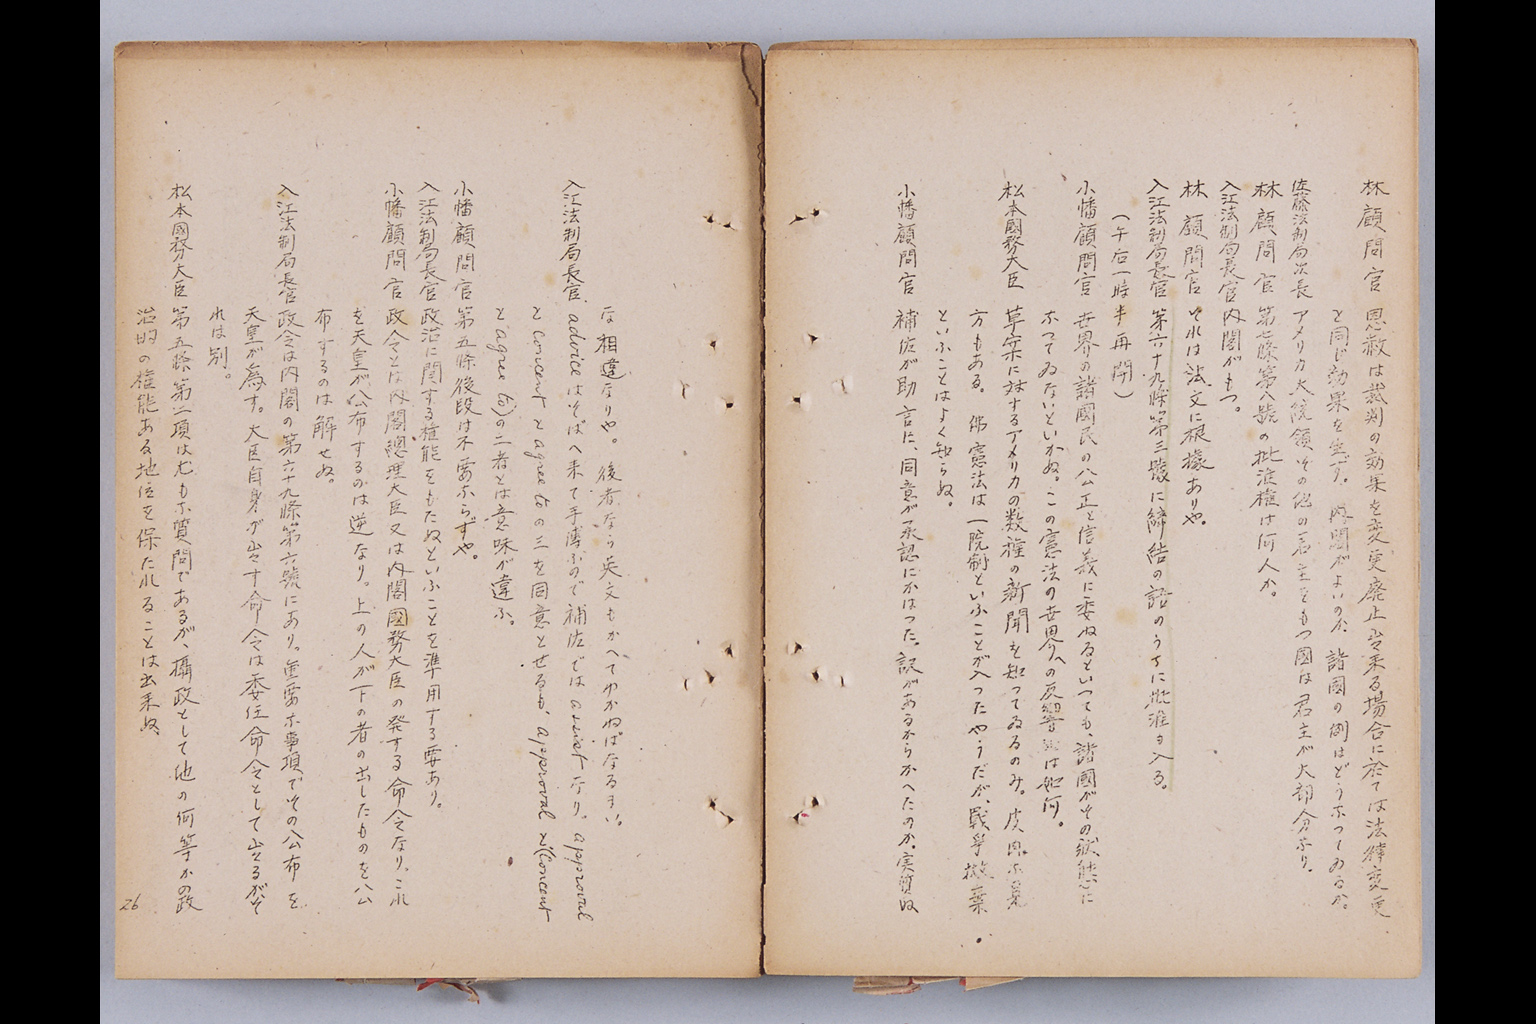 林顧問官 恩赦は裁判の効果を変更廃止出来る場合に於ては法律変更
と同じ効果を生ず。内閣がよいのか、諸國の例はどうなつてゐるか。
佐藤法制局次長 アメリカ大統領その他の君主をもつ國は君主が大部分なり。
林顧問官 第七條第八號の批准権は何人か。
入江法制局長官 内閣がもつ。
林顧問官 それは法文に根據ありや。
入江法制局長官 第六十九條第三號に締結の語のうちに批准も入る。
(午后一時半再開)
小幡顧問官 世界の諸國民の公正と信義に委ぬるといつても、諸國がその状態に
なつてゐないといかぬ。この憲法の世界への反響は如何。
松本國務大臣 草案に対するアメリカの数種の新聞を知つてゐるのみ。皮肉な見
方もある。佛憲法は一院制といふことが入つたやうだが、戦争抛棄
といふことはよく知らぬ。
小幡顧問官 補佐が助言に、同意が承認にかはつた。訳があるからかへたのか、実質的
な相違なりや。後者なら英文もかへてゆかねばなるまい。
入江法制局長官 advice はそばへ来て手傳ふので補佐では assist なり。approval
と concent と agree to の三を同意とせるも、approval と(concent
と agree to)の二者とは意味が違ふ。
小幡顧問官 第五條後段は不要ならずや。
入江法制局長官 政治に関する権能をもたぬといふことを準用する要あり。
小幡顧問官 政令とは内閣總理大臣又は内閣國務大臣の発する命令なり。これ
を天皇が公布するのは逆なり。上の人が下の者の出したものを公
布するのは解せぬ。
入江法制局長官 政令は内閣の第六十九條第六號にあり。重要な事項でその公布を
天皇が為す。大臣自身が出す命令は委任命令として出るがそ
れは別。
松本國務大臣 第五條第二項は尤もな質問であるが、攝政として他の何等かの政
治的の権能ある地位を保たれることは出来ぬ
26